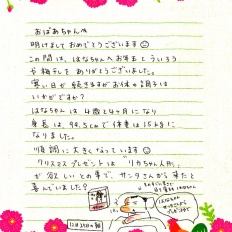 おばあちゃんへ
明けましておめでとうございます
この間は、はなちゃんへお年玉とういろう
や梅干しをありがとうございました。
寒い日が続きますがお体の調子は
いかがですか？
はなちゃんは4歳と4ヶ月になり
身長は、94.5cmで体重は15kgに
なりました。
順調に大きくなっています
クリスマスプレゼントは「リカちゃん人形」
が欲しいとの事で、サンタさんから来たと
喜んでいました？
12月25日の朝